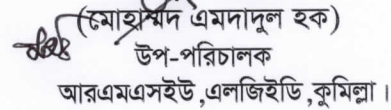 (মোহাম্মদ এমদাদুল হক)
উপ-পরিচালক
আরএমএসইউ,এলজিইডি,কুমিল্লা।